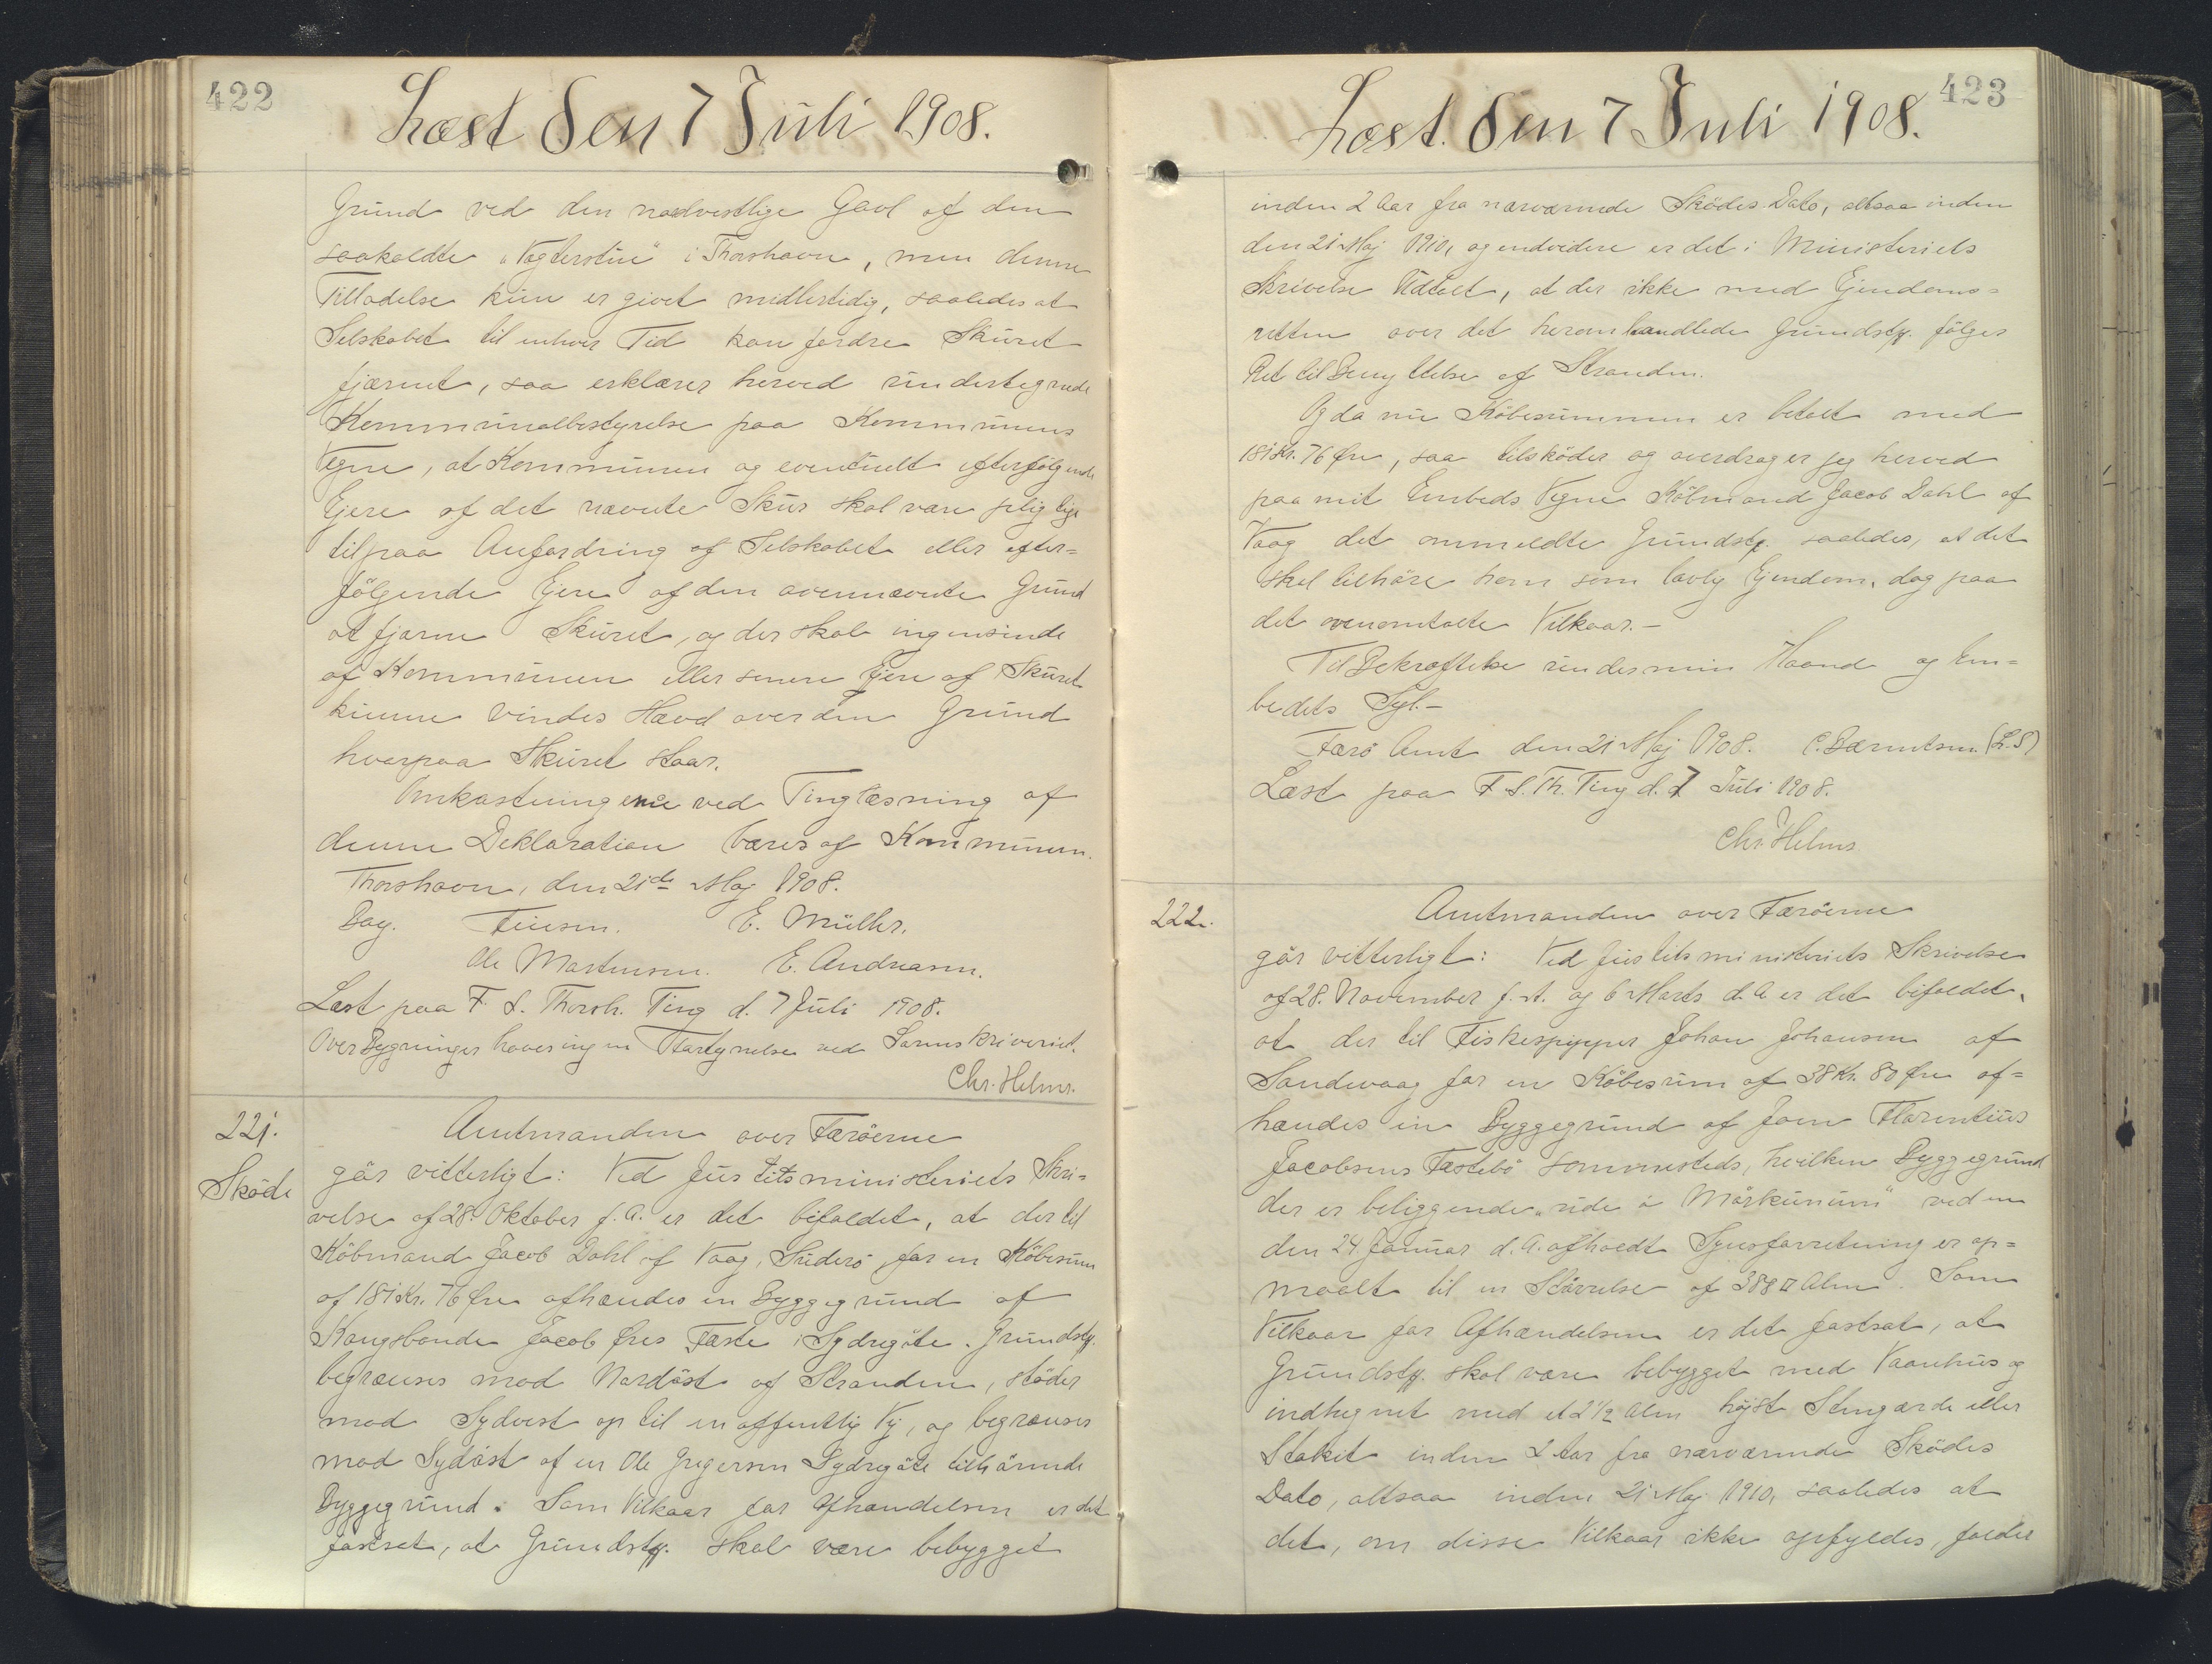 422
Læst den 7 Juli 1908.
Grund ved den nordvestlige Gavl af den
saakaldte „Vagterstue" i Thorshavn, men denne
Tilladelse kun er givet midlertidig, saaledes at
Selskabet til enhver Tid kan fordre Skuret
fjærnet, saa erklærer herved undertegnede
Kommunalbestyrelse paa Kommunens
Vegne, at Kommunen og eventuelt efterfølgende
Ejere af det nævnte Skur skal være pligtige
til paa Anfordring af Selskabet eller efter=
følgende Ejere af den ovennævnte Grund
at fjærne Skuret, og der skal ingensinde
af Kommunen eller senere Ejere af Skuret
kunne vindes Hævd over den Grund
hvorpaa Skuret staar.
Omkostningerne ved Tinglæsning af
denne Deklaration bæres af Kommunen.
Thorshavn, den 21de Maj 1908.
Bay. E. Müller.
Ole Mortensen. E. Andreasen.
Læst paa F. S. Thorsh. Ting d. 7 Juli 1908.
Over Bygninger haves ingen ved Sorenskriveriet.
Chr. Helms.
221.
Skøde
Amtmanden over Færøerne
gør vitterligt: Ved Justitsministeriets Skri=
velse af 28. Oktober f. A. er det bifaldet, at der til
Købmand Jacob Dahl af Vaag, Suderø for en Købesum
af 181 Kr. 76 Øre afhændes en Byggegrund af
Kongsbonde Jacob Øres Fæste i Sydregøte. Grundstk.
begrænses mod Nordøst af Stranden, støder
mod Sydvest op til en offentlig Vej, og begrænses
mod Sydøst af en Ole Gregersen Sydregøte tilhørende
Byggegrund. Som Vilkaar for Afhændelsen er det
fastsat, at Grundstk. skal være bebygget
423
Læst. den 7 Juli 1908.
inden 2 Aar fra nærværende Skødes Dato, altsaa inden
den 21 Maj 1910, og endvidere er det i Ministeriets
Skrivelse udtalt, at der ikke med Ejendoms=
retten over det heromhandlede Grundstk. følges
Ret til Benyttelse af Stranden.
Og da nu Købesummen er betalt med
181 Kr. 76 Øre, saa tilskøder og overdrager jeg herved
paa mit Embeds Vegne Købmand Jacob Dahl af
Vaag det ommeldte Grundstk. saaledes, at det
skal tilhøre ham som lovlig Ejendom, dog paa
det ovenomtalte Vilkaar.-
Til Bekræftelse under min Haand og Em=
bedets Sgl.-
Færø Amt den 21 Maj 1908. C. Bærentsen. (L.S)
Læst paa F. S. Th. Ting d. 7 Juli 1908.
Chr. Helms
222.
Amtmanden over Færøerne
gør vitterligt: Ved Justitsministeriets Skrivelse
af 28. November f. A. og 6 Marts d. A. er det bifaldet,
at der til Fiskespipper Johan Johansen af
Sandevaag for en Købesum af 38 Kr. 80 Øre af=
hændes en Byggegrund af Joen Florentius
Jacobsens Fæstebø sammesteds, hvilken Byggegrund
der er beliggende „ude i Mørkunum" ved en
den 24 Januar d. A. afholdt Synsforretning er op=
maalt til en Størrelse af 388 □ Alen. Som
Vilkaar for Afhændelsen er det fastsat, at
Grundstk. skal være bebygget med Vaanhus og
indhegnet med et 2 1/2 Alen højt Stengærde eller
Stakit inden 2 Aar fra nærværende Skødes
Dato, altsaa inden 21 Maj 1910, saaledes at
det, om disse Vilkaar ikke opfyldes, falder